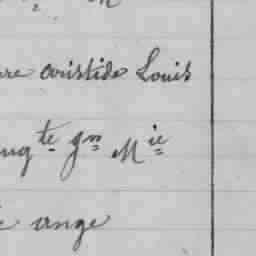 re aristide Louis
ug te Jn Mie
ange